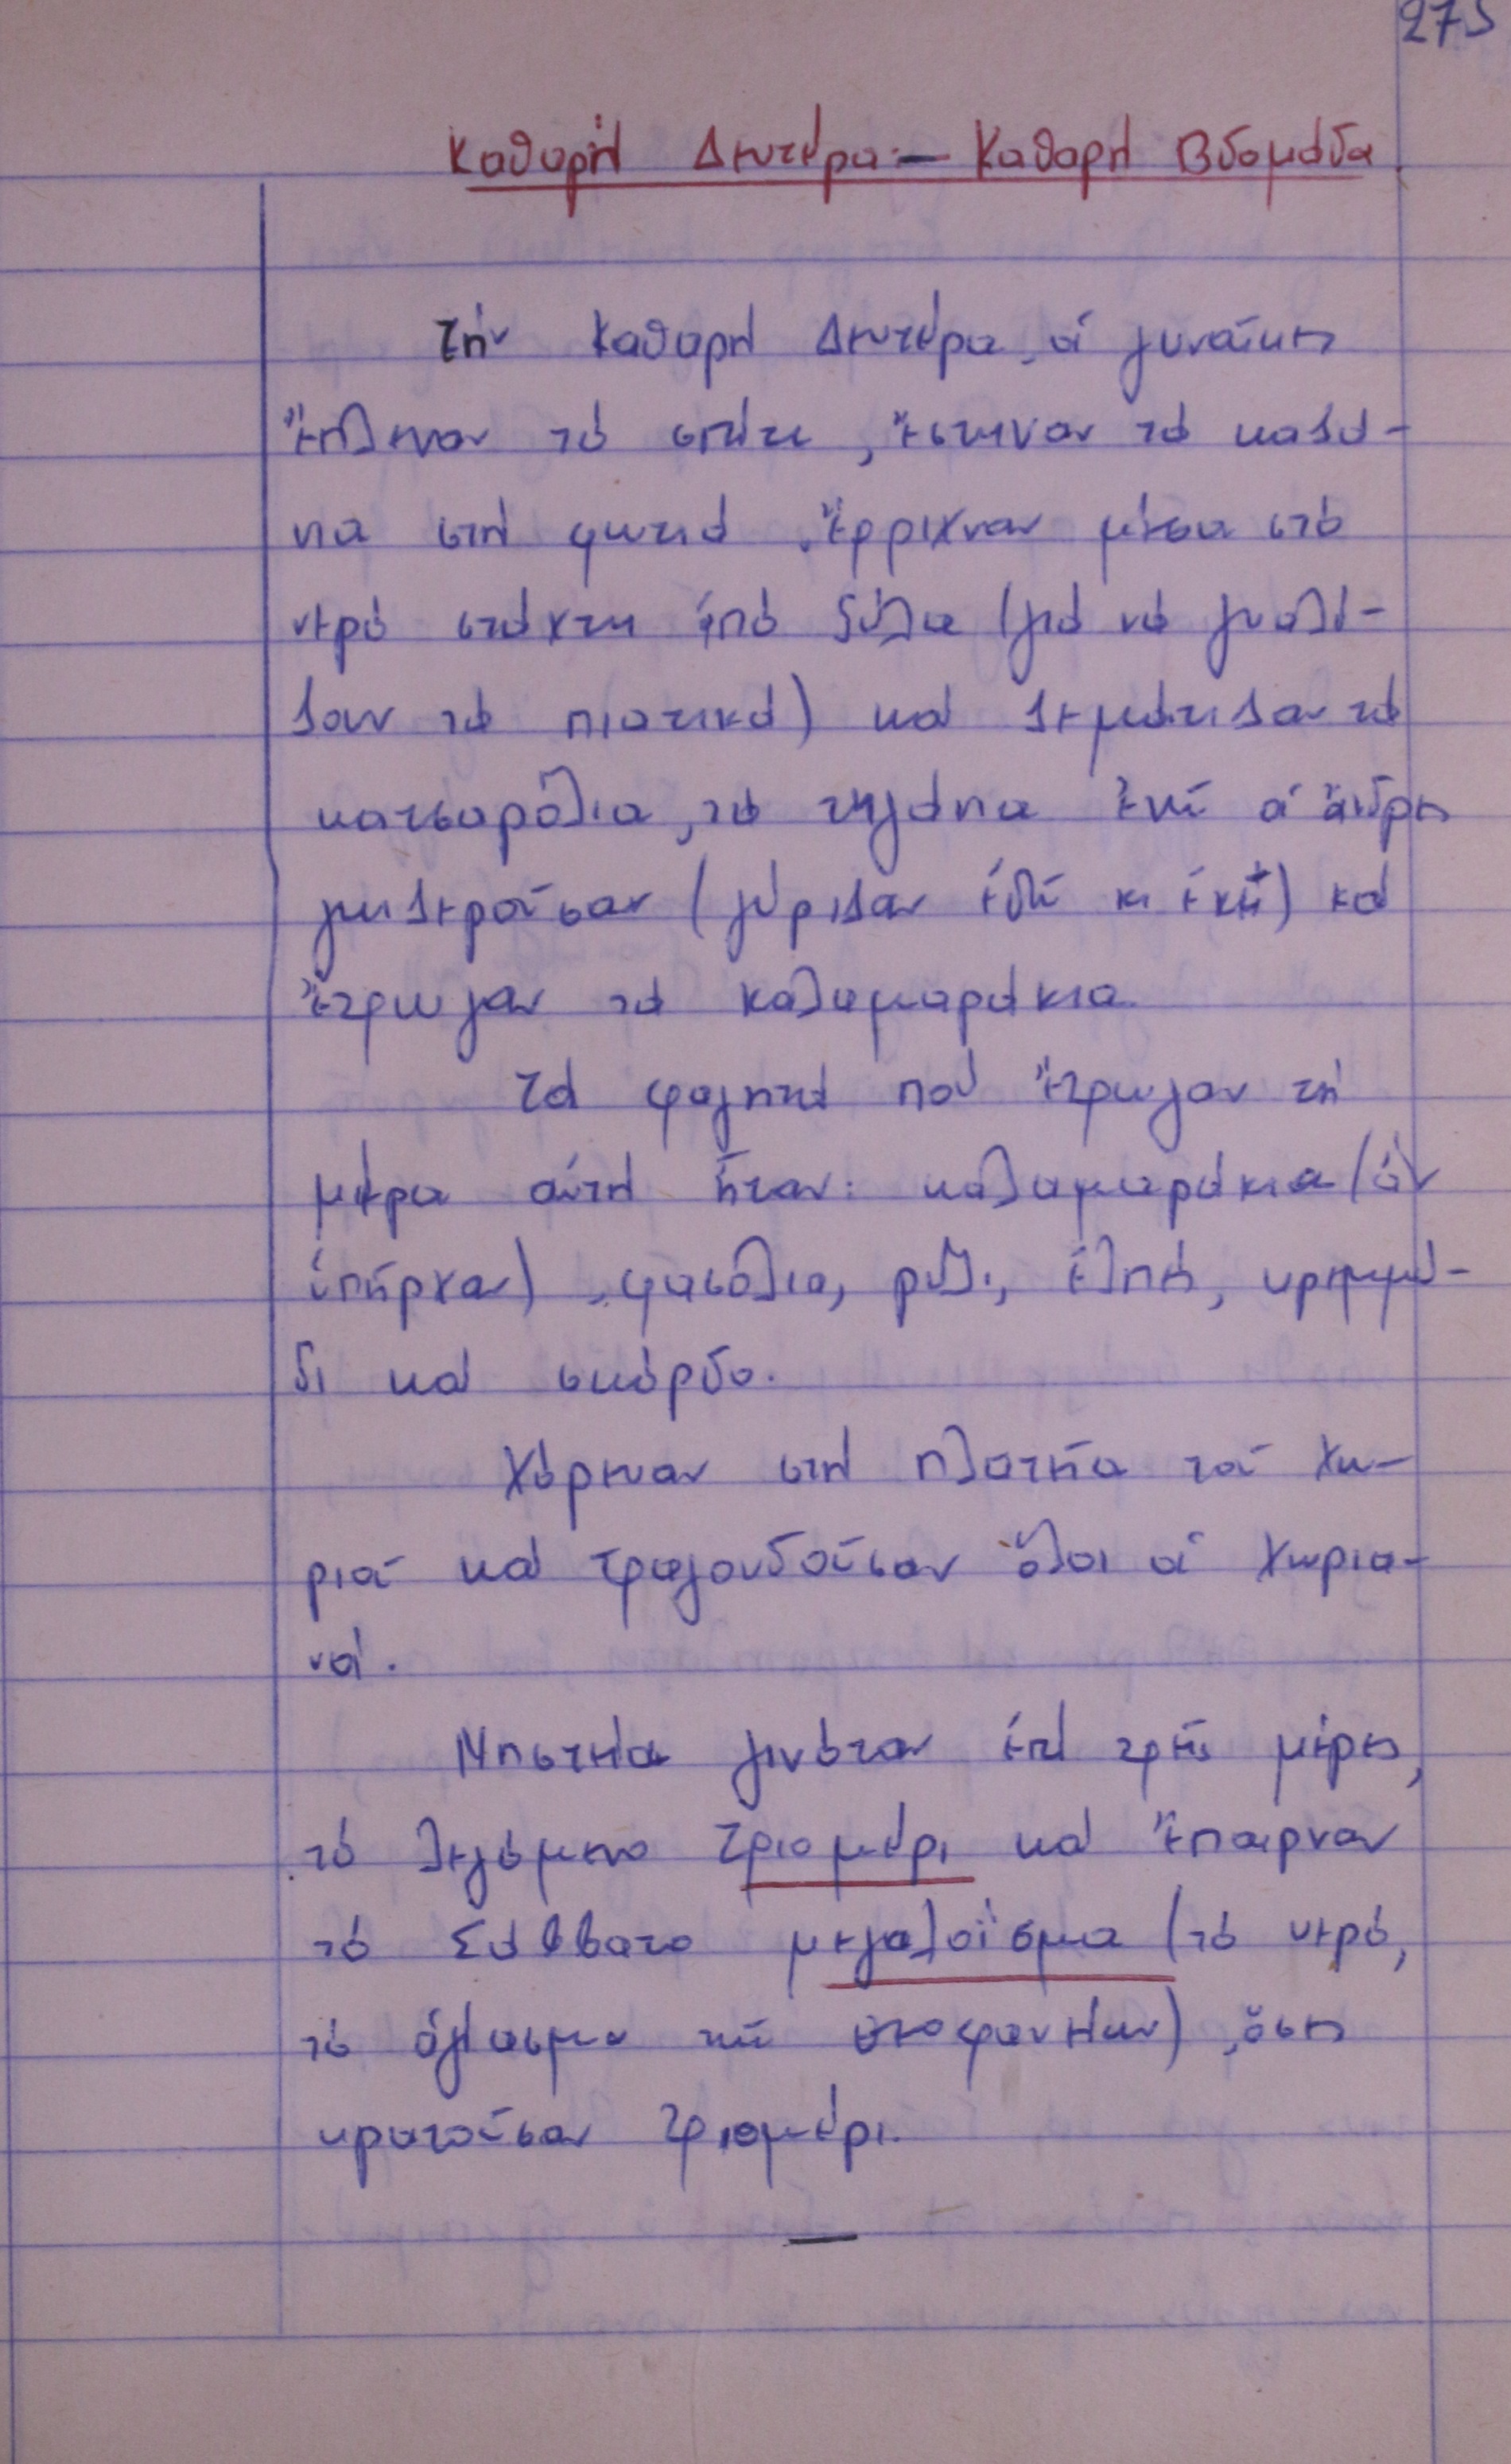 275
Καθαρή Δευτέρα - Καθαρή Βδομάδα.
Τήν Καθαρή Δευτέρα, οἱ γυναῖκες
ἔπλεναν τό σπίτι, ἔστηναν τά καζά-
νια στή φωτιά. Ἔρριχναν μέσα στό
νερό στάχτη ἀπό ξύλα (γιά νά γυαλί-
ζουν τά πιατικά) καί ζεμάτιζαν τά
κατσαρόλια, τά τηγάνια ἐνῶ οἱ ἄνδρες
γκιζεροῦσαν (γύριζαν ἐδῶ κι ἐκεῖ) καί
ἔτρωγαν τά καλαμαράκια.
Τά φαγητά πού ἔτρωγαν τή
μέρα αὐτή ἦταν: καλαμαράκια (ἄν
ὑπῆρχαν), φασόλια, ρύζι, ἐλιές, κρεμμύ-
δι καί σκόρδο.
Χόρευαν στή πλατεῖα τοῦ χω-
ριοῦ καί τραγουδοῦσαν ὅλοι οἱ χωρια-
νοί.
Νηστεία γινόταν ἐπί τρεῖς μέρες,
τό λεγόμενο τριομέρι καί ἔπαιρναν
τό Σάββατο μεγαλοΐσμα (τό νερό,
τό ἁγίασμα τῶν Θεοφανείων), ὅσες
κρατοῦσαν τριομέρι.